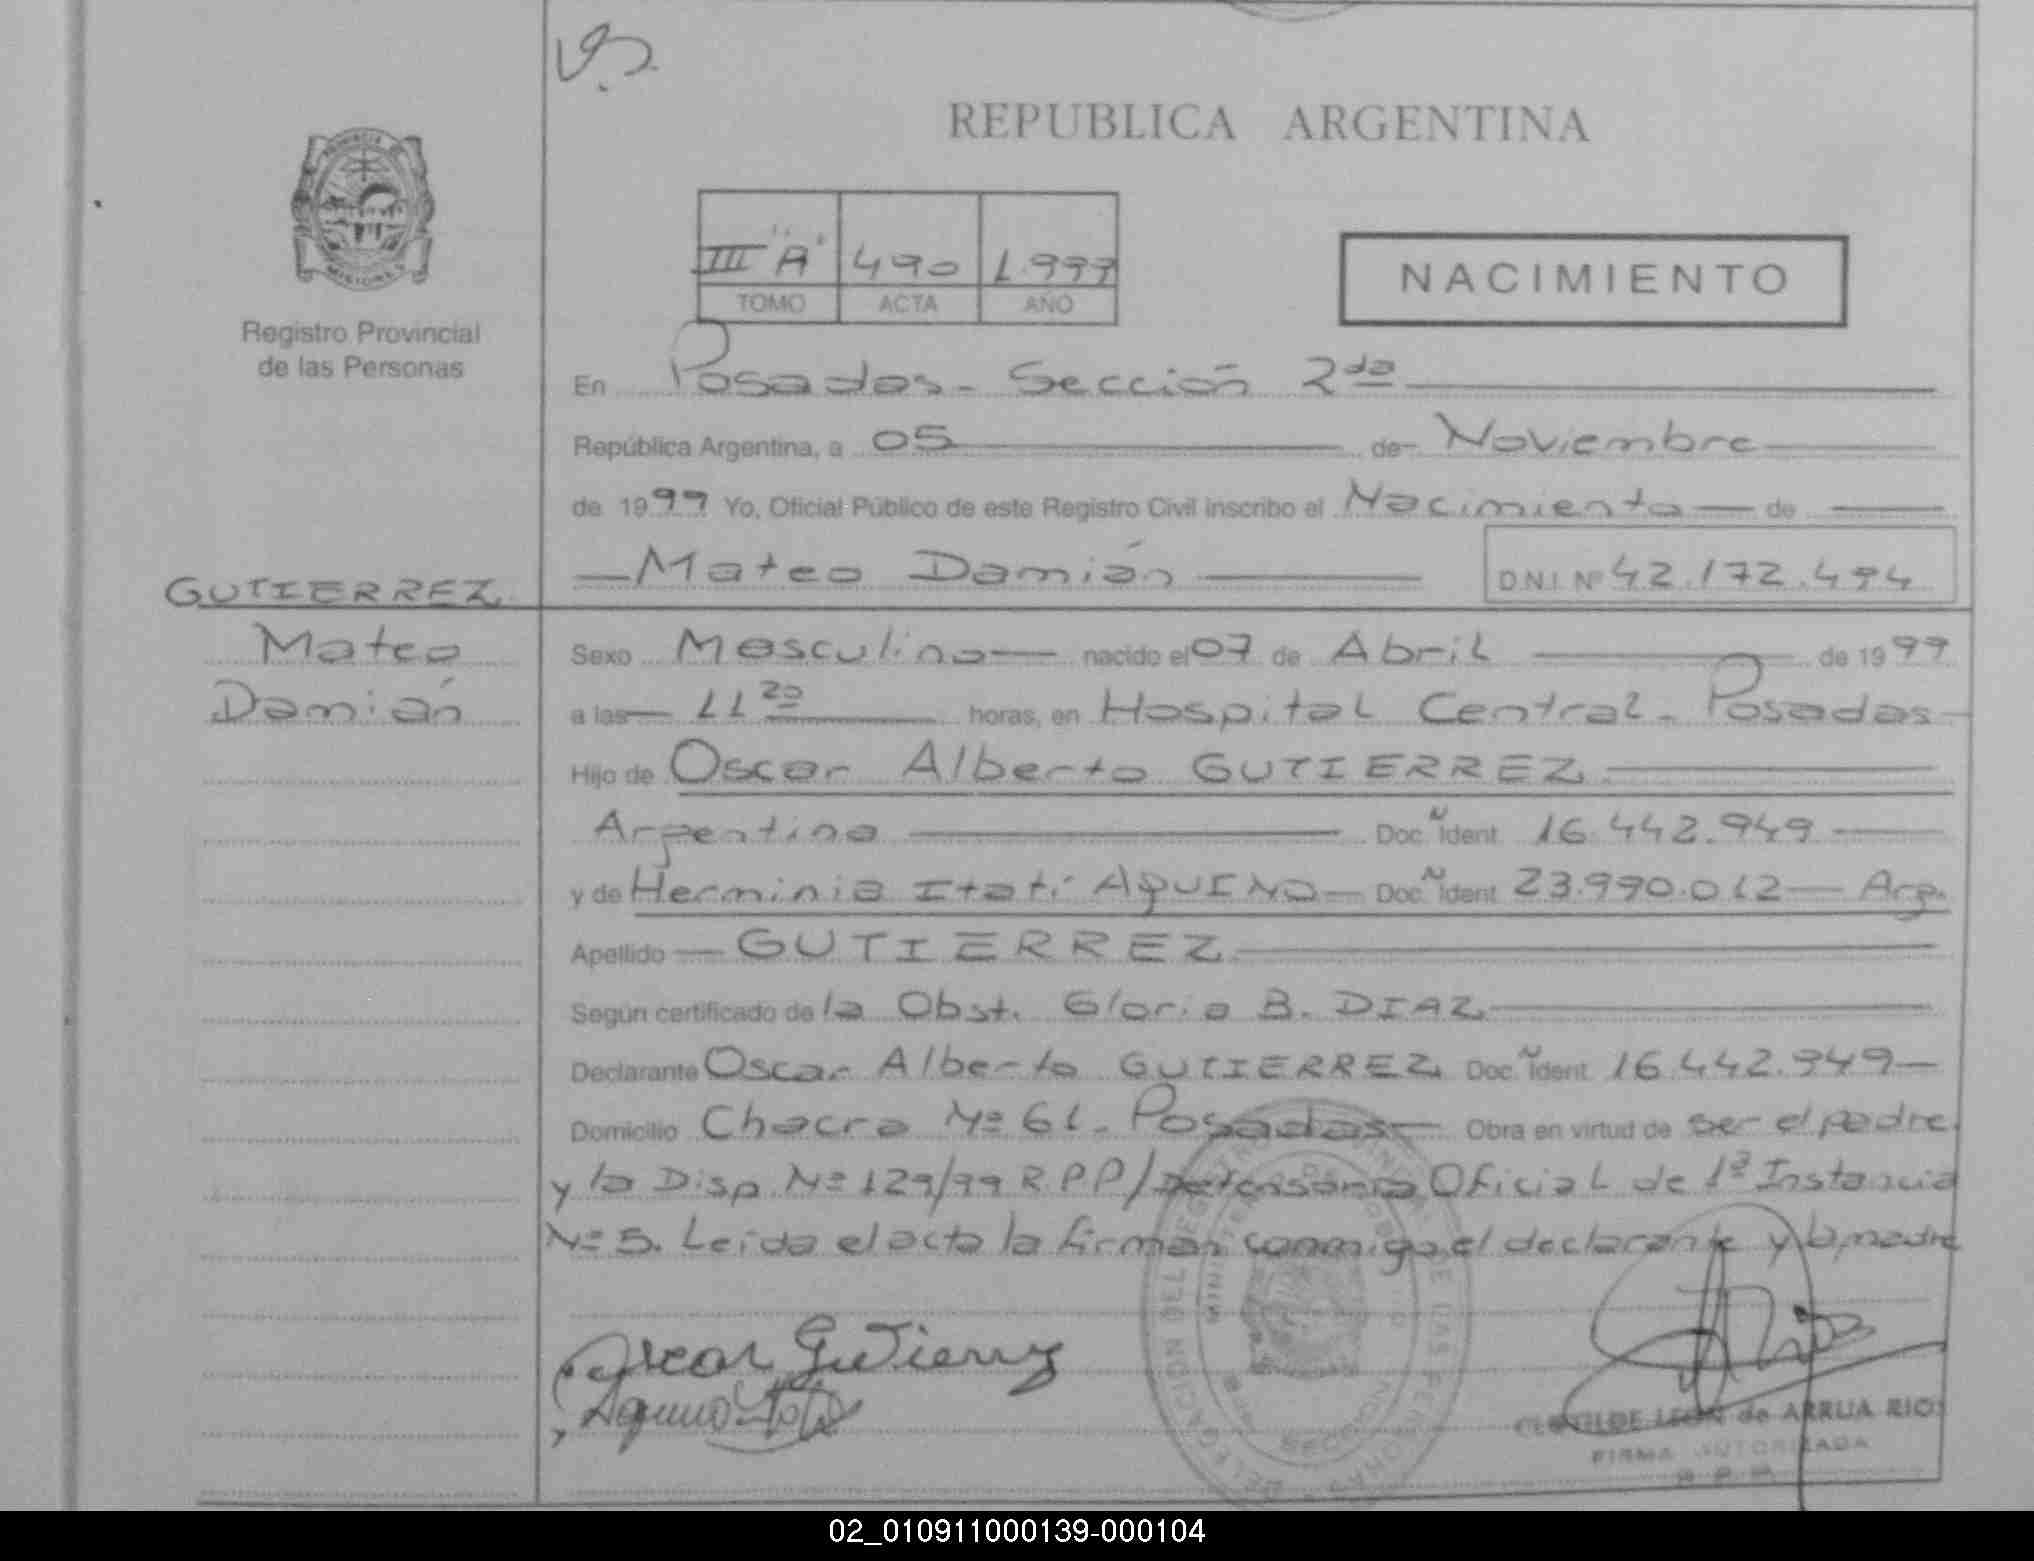 REPUBLICA ARGENTINA
PROVINCIA DE MISIONES
Registro Provincial
de las Personas
III "A" 490 1.999
TOMO ACTA AÑO
NACIMIENTO
En Posadas - Sección 2da
República Argentina, a 05 de Noviembre
de 1999 Yo, Oficial Público de este Registro Civil inscribo el Nacimiento de
Mateo Damián D.N.I. Nº 42.172.494
GUTIERREZ
Mateo
Damián
Sexo Masculino nacido el 07 de Abril de 1999
a las 11 20 horas, en Hospital Central - Posadas
Hijo de Oscar Alberto GUTIERREZ
Argentino Doc. Ident 16.442.949
y de Herminia Itatí AQUINO Doc. Ident 23.990.012 Arg.
Apellido GUTIERREZ
Según certificado de la Obst. Gloria B. DIAZ
Declarante Oscar Alberto GUTIERREZ Doc. Ident 16.442.949
Domicilio Chacra Nº 61 - Posadas Obra en virtud de ser el padre
y la Disp Nº 129/99 R.P.P/Defensoria Oficial de 1ª Instancia
Nº 5. Leida el acta la firman conmigo el declarante y la madre
Oscar Gutierrez
Aquino Itati
CLOTILDE LEON de ARRUA RIOS
FIRMA AUTORIZADA
R.P.P.
02_010911000139-000104